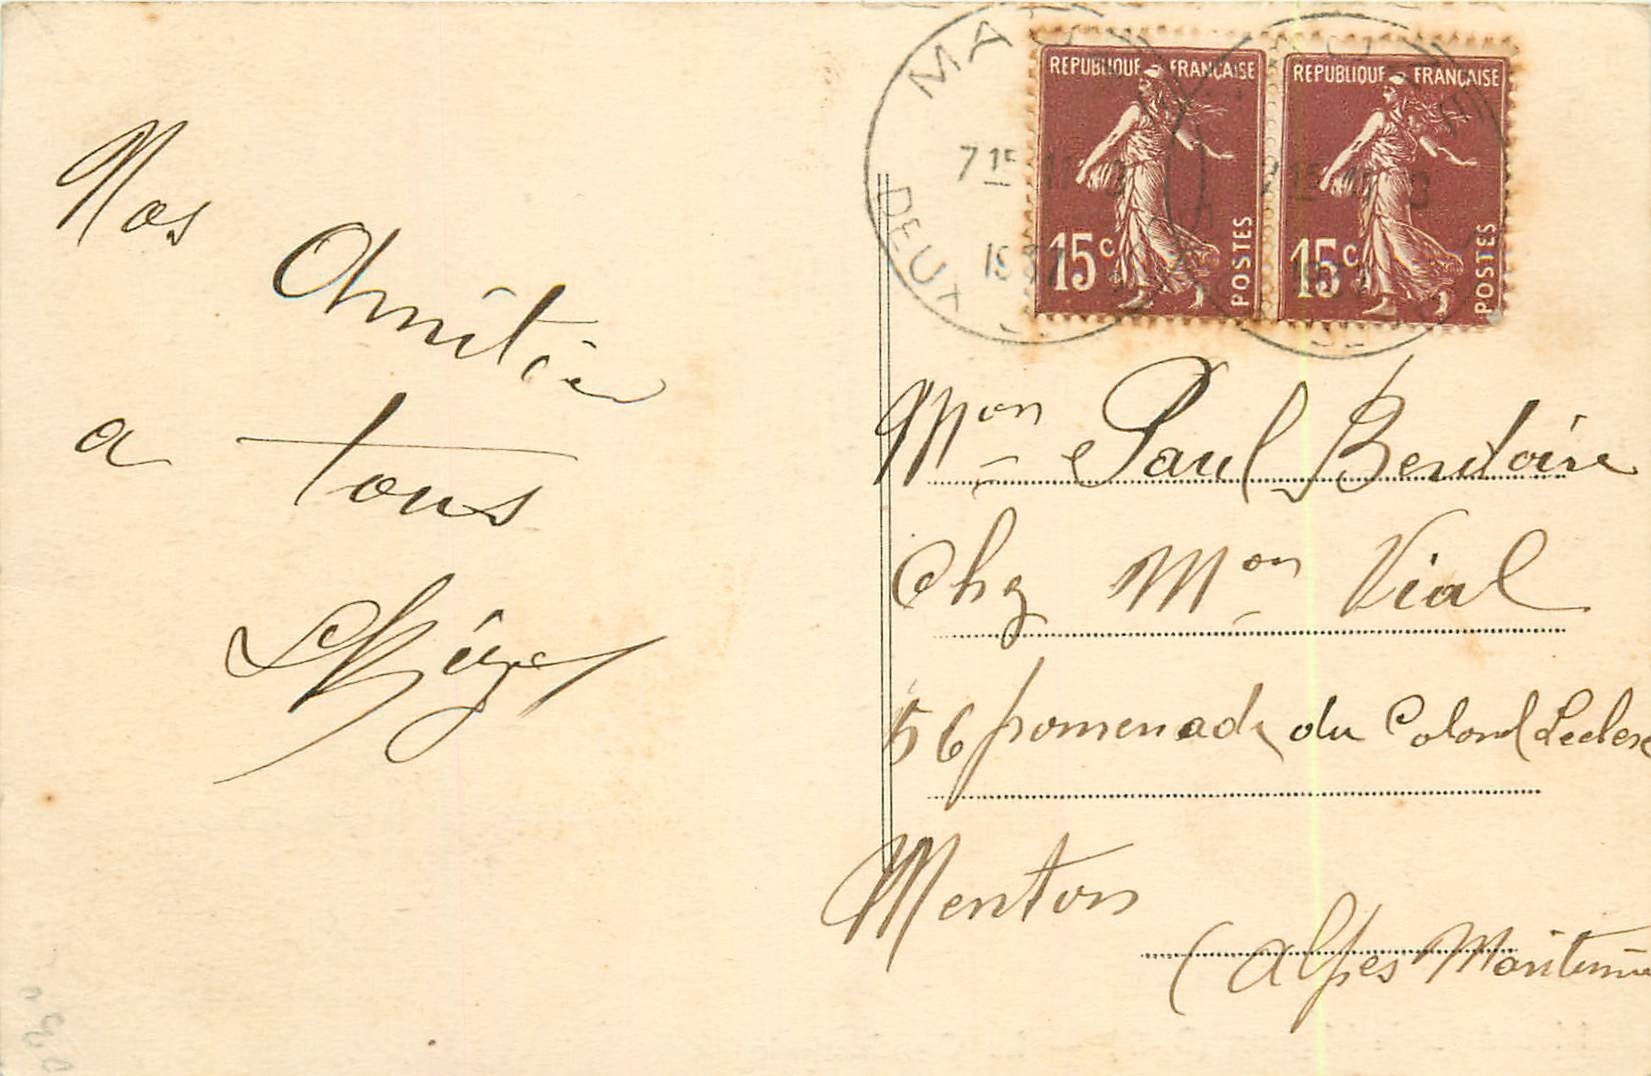 Nos
Amitiés
a tous
REPUBLIQUE FRANÇAISE
15c
POSTES
REPUBLIQUE FRANÇAISE
15c
POSTES
DEUX
Mon Paul Berdoire
Chz Mon Vial
56 promenade du Colonel Leclerc
Menton
(Alpes Maritimes